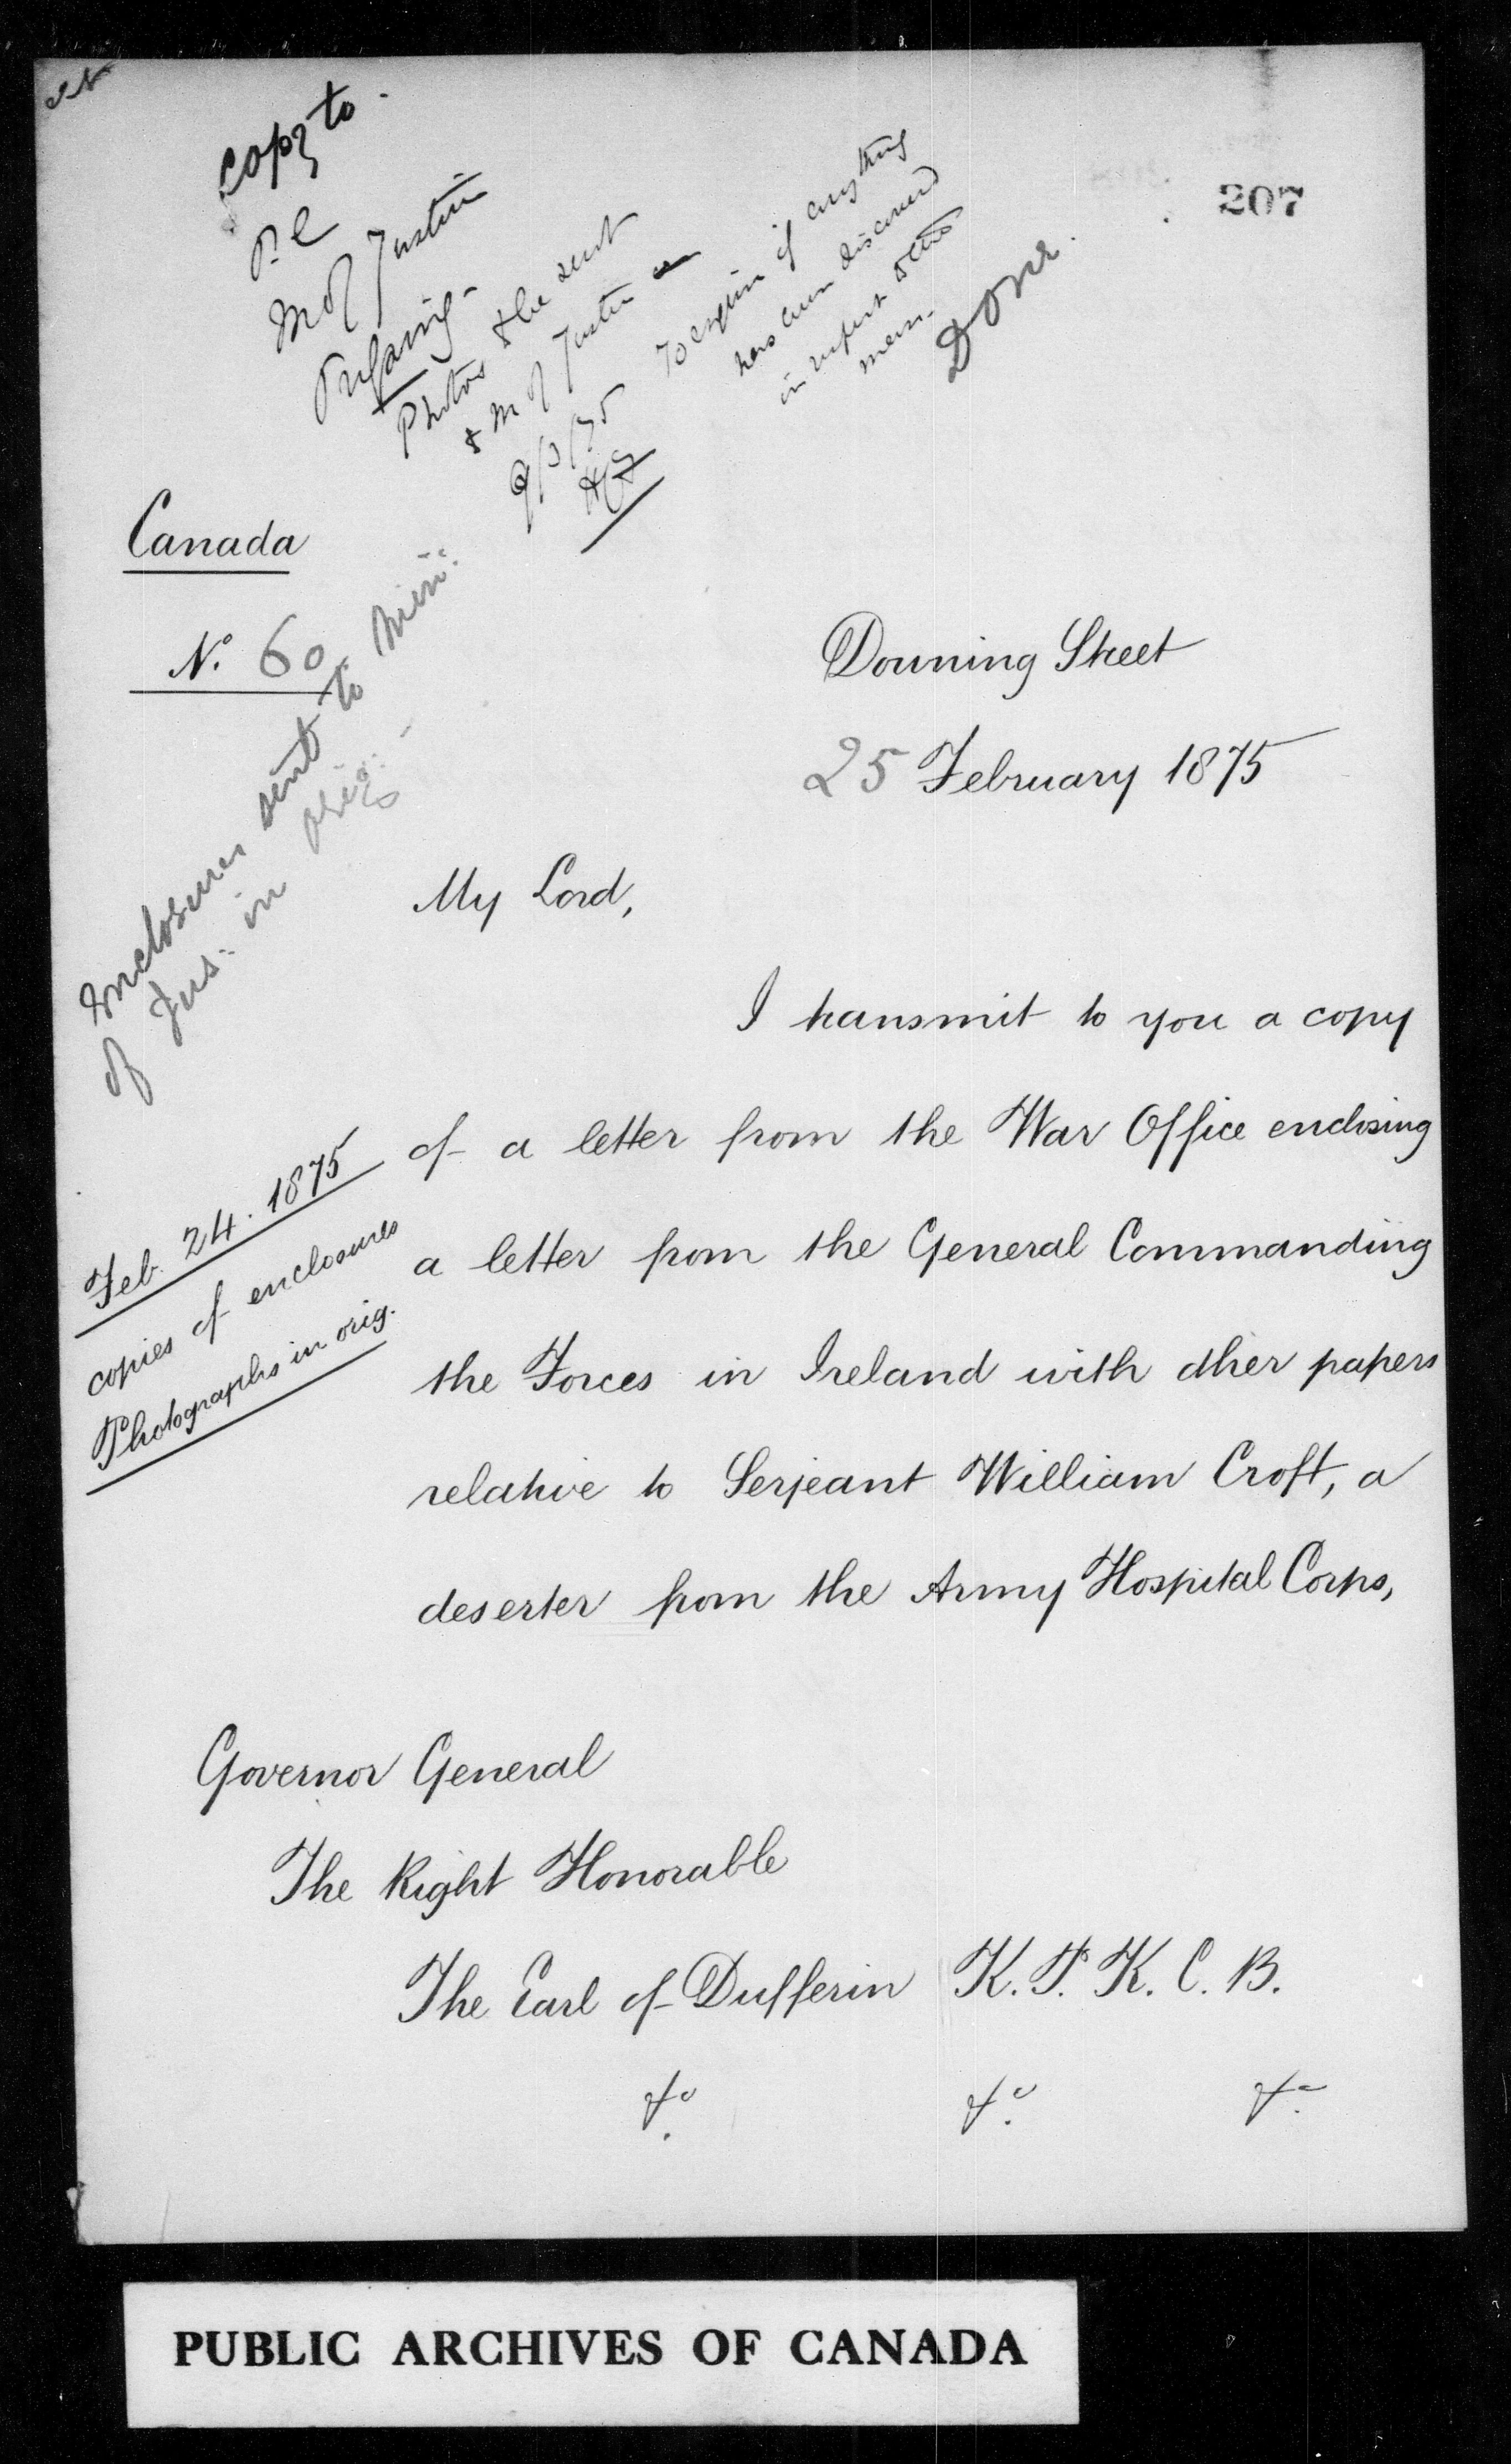 207
Copy to
P.C
M of Justice
Photos to be sent
to M of Justice
9/3/75
To enquire if anything
has been discovered
in respect to this
man.
Done.
Canada
No. 60
Downing Street
25 February 1875
Enclosures sent to Min:
of Jus: in orig:
My Lord,
I transmit to you a copy
of a letter from the War Office enclosing
a letter from the General Commanding
the Forces in Ireland with other papers
relative to Serjeant William Croft, a
deserter from the Army Hospital Corps,
Feb. 24. 1875
copies of enclosures
Photographs in orig.
Governor General
The Right Honorable
The Earl of Dufferin K.P. K.C.B.
&c &c &c
PUBLIC ARCHIVES OF CANADA